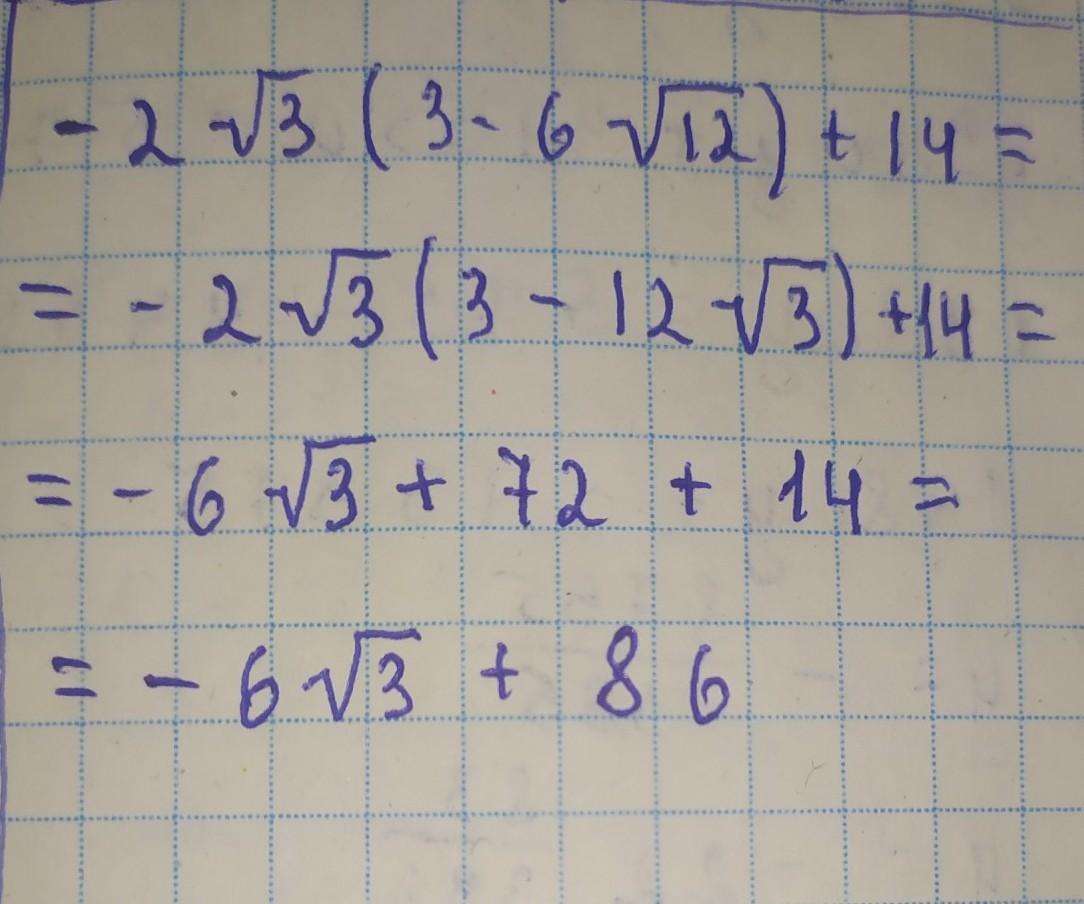 - 2 √3 ( 3 - 6 √12 ) + 14 =
= - 2 √3 ( 3 - 12 √3 ) + 14 =
= - 6 √3 + 72 + 14 =
= - 6 √3 + 86